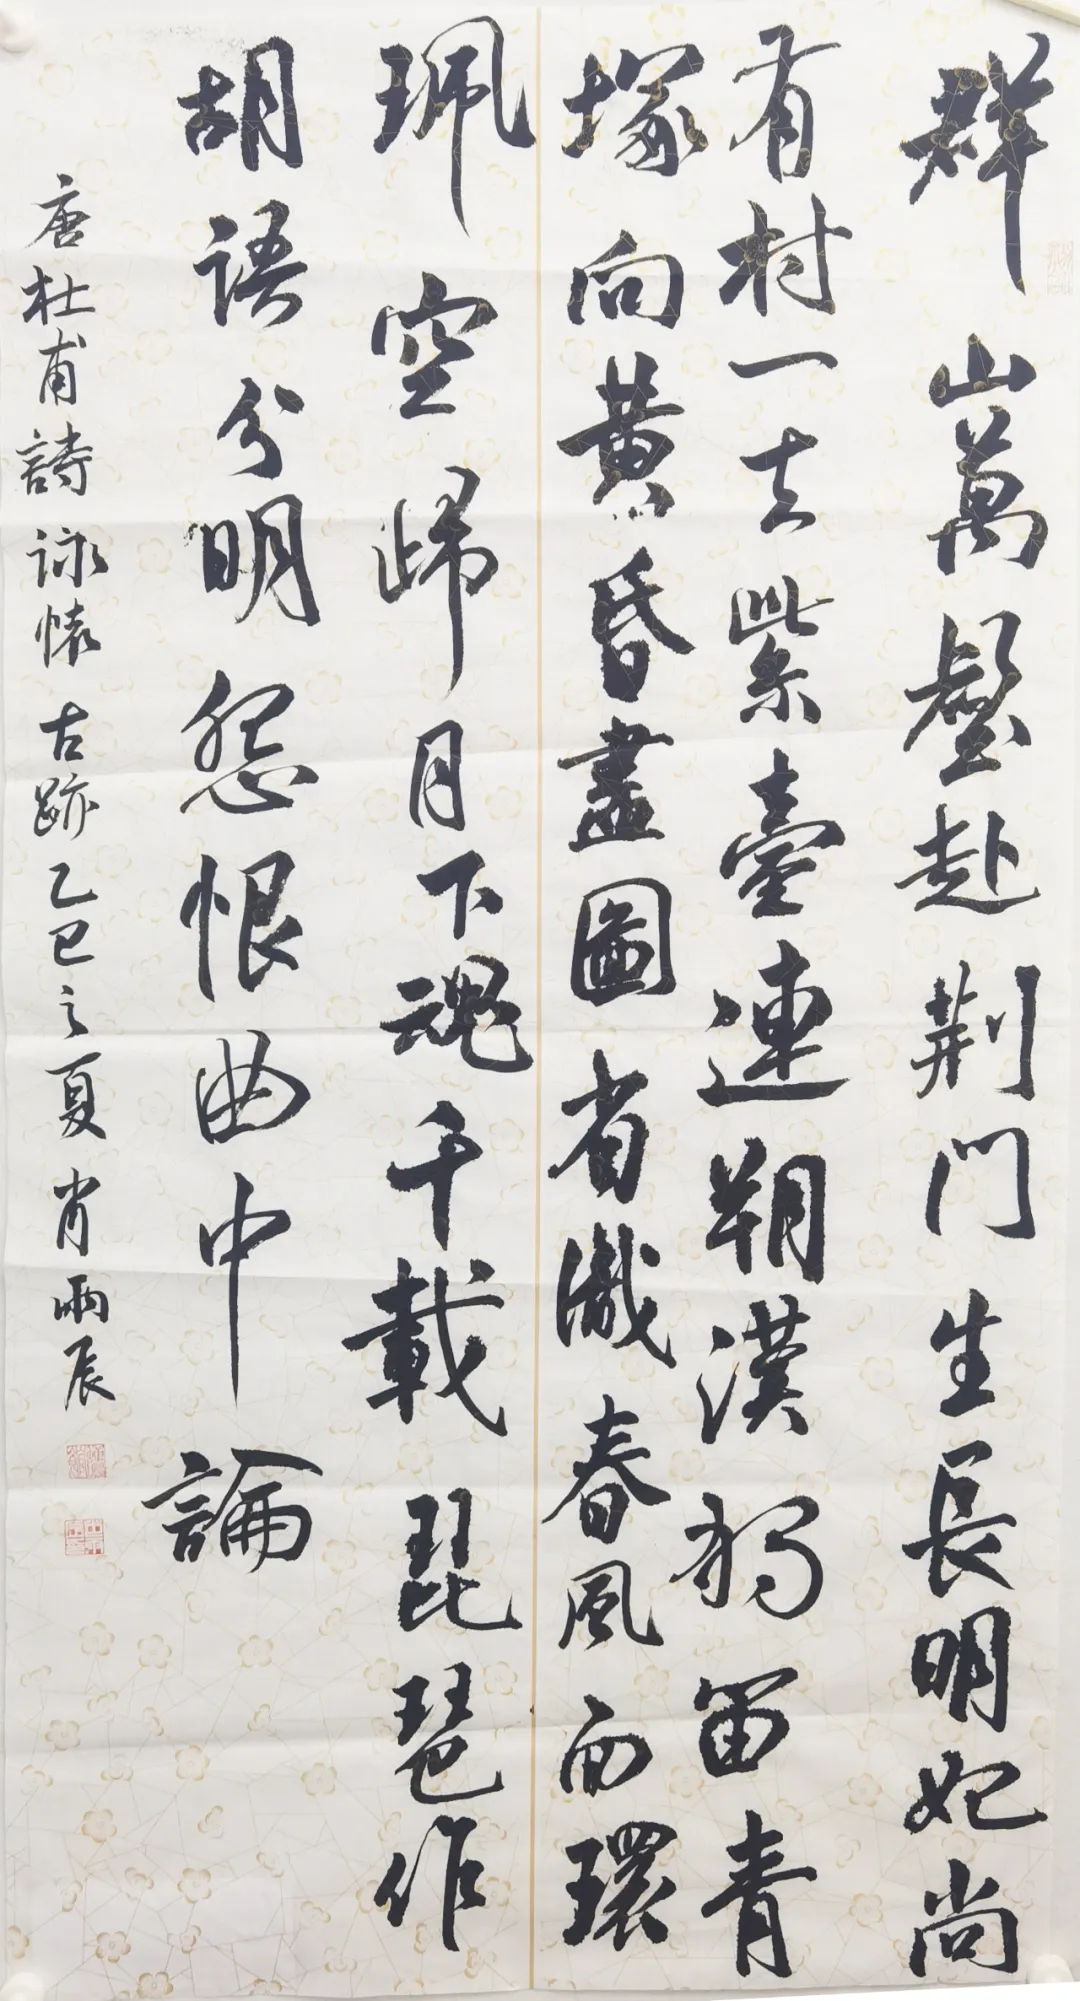 群山萬壑赴荆門生長明妃尚
有村一去紫臺連朔漠獨留青
塚向黄昏畫圖省識春風面環
珮空歸月下魂千載琵琶作
胡語分明怨恨曲中論
唐杜甫詩詠懷古跡乙巳之夏肖雨辰